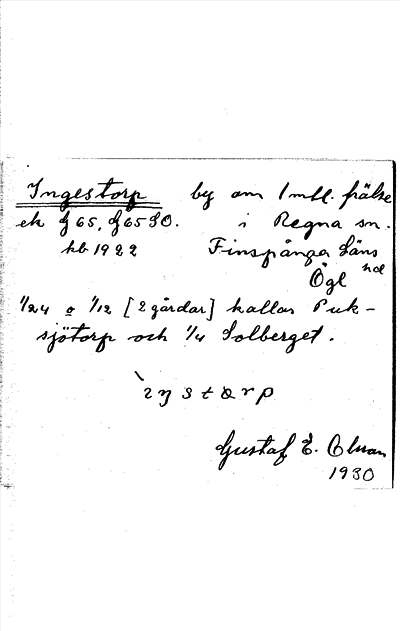 Ingestorp by om 1 mtl. frälse
ek f 65, f 65 SO. i Regna sn.
hb 1922 Finspånga läns
hd
Ögl
1/24 o 1/12 [2 gårdar] kallas Puk-
sjötorp och 1/4 Solberget.
Gustaf E.
1930